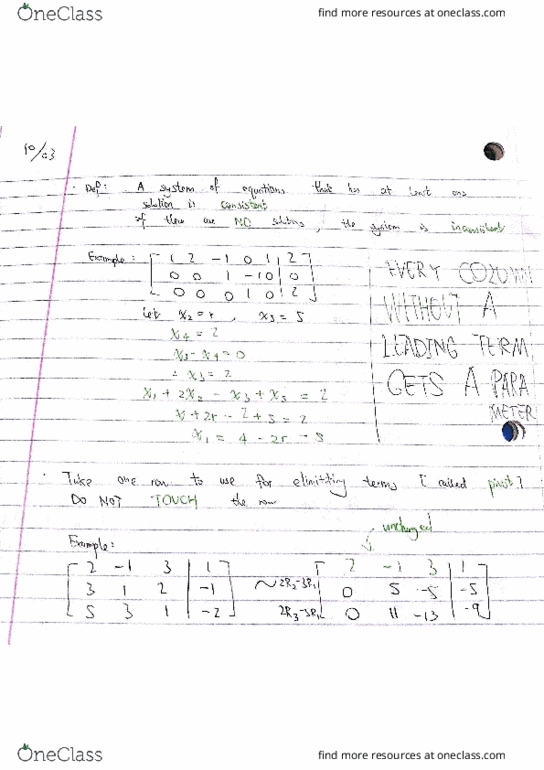 OneClass find more resources at oneclass.com
10/03
Def: A system of equations that has at least one
solution is consistent
if there are NO solutions, the system is inconsistent
Example: [ 1 2 -1 0 1 | 2 ]
0 0 1 -1 0 | 0
0 0 0 1 0 | 2
EVERY COLUMN
WITHOUT A
LEADING TERM
GETS A PARA
METER
let x2 = r, x5 = s
x4 = 2
x3 - x4 = 0
∴ x3 = 2
x1 + 2x2 - x3 + x5 = 2
x + 2r - 2 + s = 2
x1 = 4 - 2r - s
Take one row to use for elimitting terms [called pivot]
DO NOT TOUCH the row
unchanged
Example:
[ 2 -1 3 | 1 ] [ 2 -1 3 | 1 ]
3 1 2 | -1 ~ 2R2-3R1 0 5 -5 | -5
5 3 1 | -2 0 11 -13 | -9
OneClass find more resources at oneclass.com